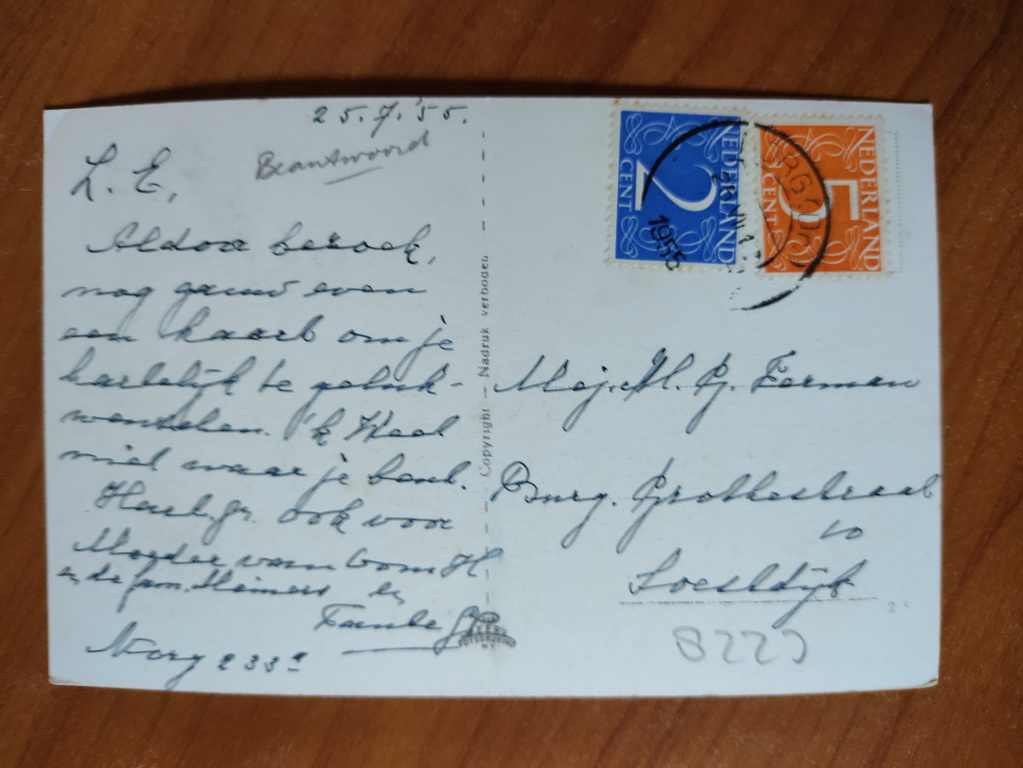 25.7.'55.
Beantwoord
L. E,
bezoek,
nog gauw even
een kaart om je
hartelijk te geluk-
wenschen. 'k Weet
niet waar je bent.
Hart. gr. ook voor
Moeder van Oom H
en de fam. Meiners en
Tante G
Norg 233a
Copyright — Nadruk verboden
NEDERLAND
2
CENT
NEDERLAND
5
CENT
1955
Mej. M. G. Ferman
Burg. Grothestraat
10
Soestdijk
28
8225